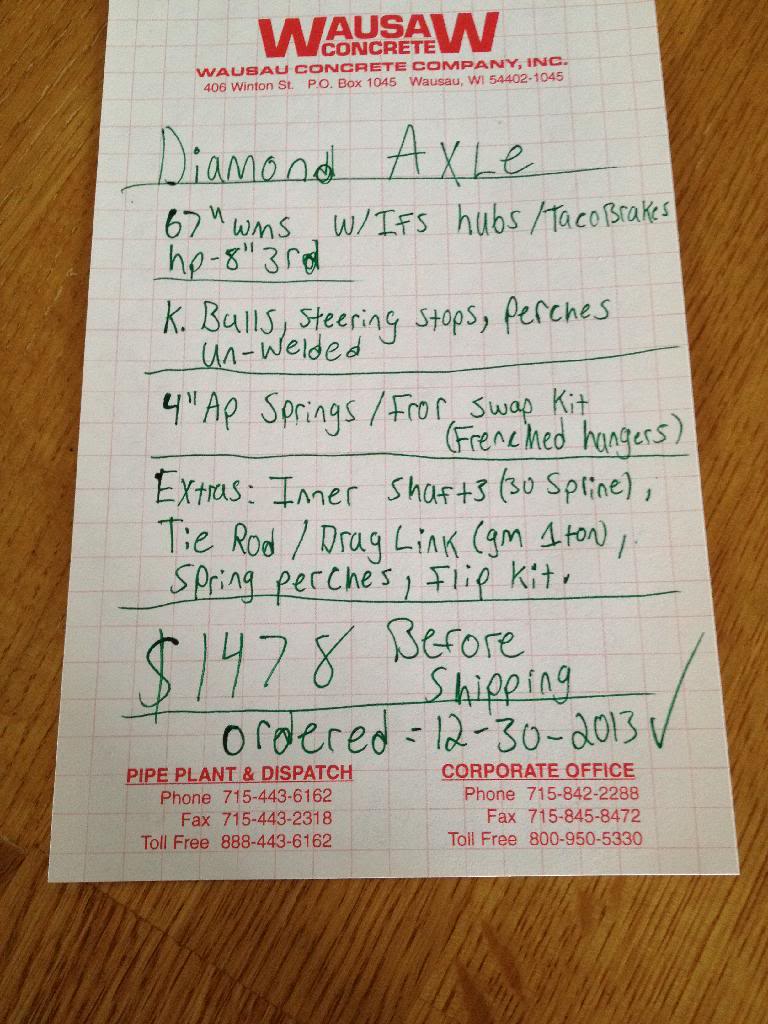 WAUSAW
CONCRETE
WAUSAU CONCRETE COMPANY, INC.
406 Winton St. P.O. Box 1045 Wausau, WI 54402-1045
Diamond Axle
67" wms w/IFS hubs/TacoBrakes
hp-8" 3rd
K. Balls, steering stops, perches
un-welded
4" Ap Springs/Fror swap Kit
(Frenched hangers)
Extras: Inner shafts (30 Spline),
Tie Rod / Drag Link (gm 1ton),
Spring perches, Flip Kit.
$1478 Before
Shipping
ordered = 12-30-2013 ✓
PIPE PLANT & DISPATCH
Phone 715-443-6162
Fax 715-443-2318
Toll Free 888-443-6162
CORPORATE OFFICE
Phone 715-842-2288
Fax 715-845-8472
Toll Free 800-950-5330